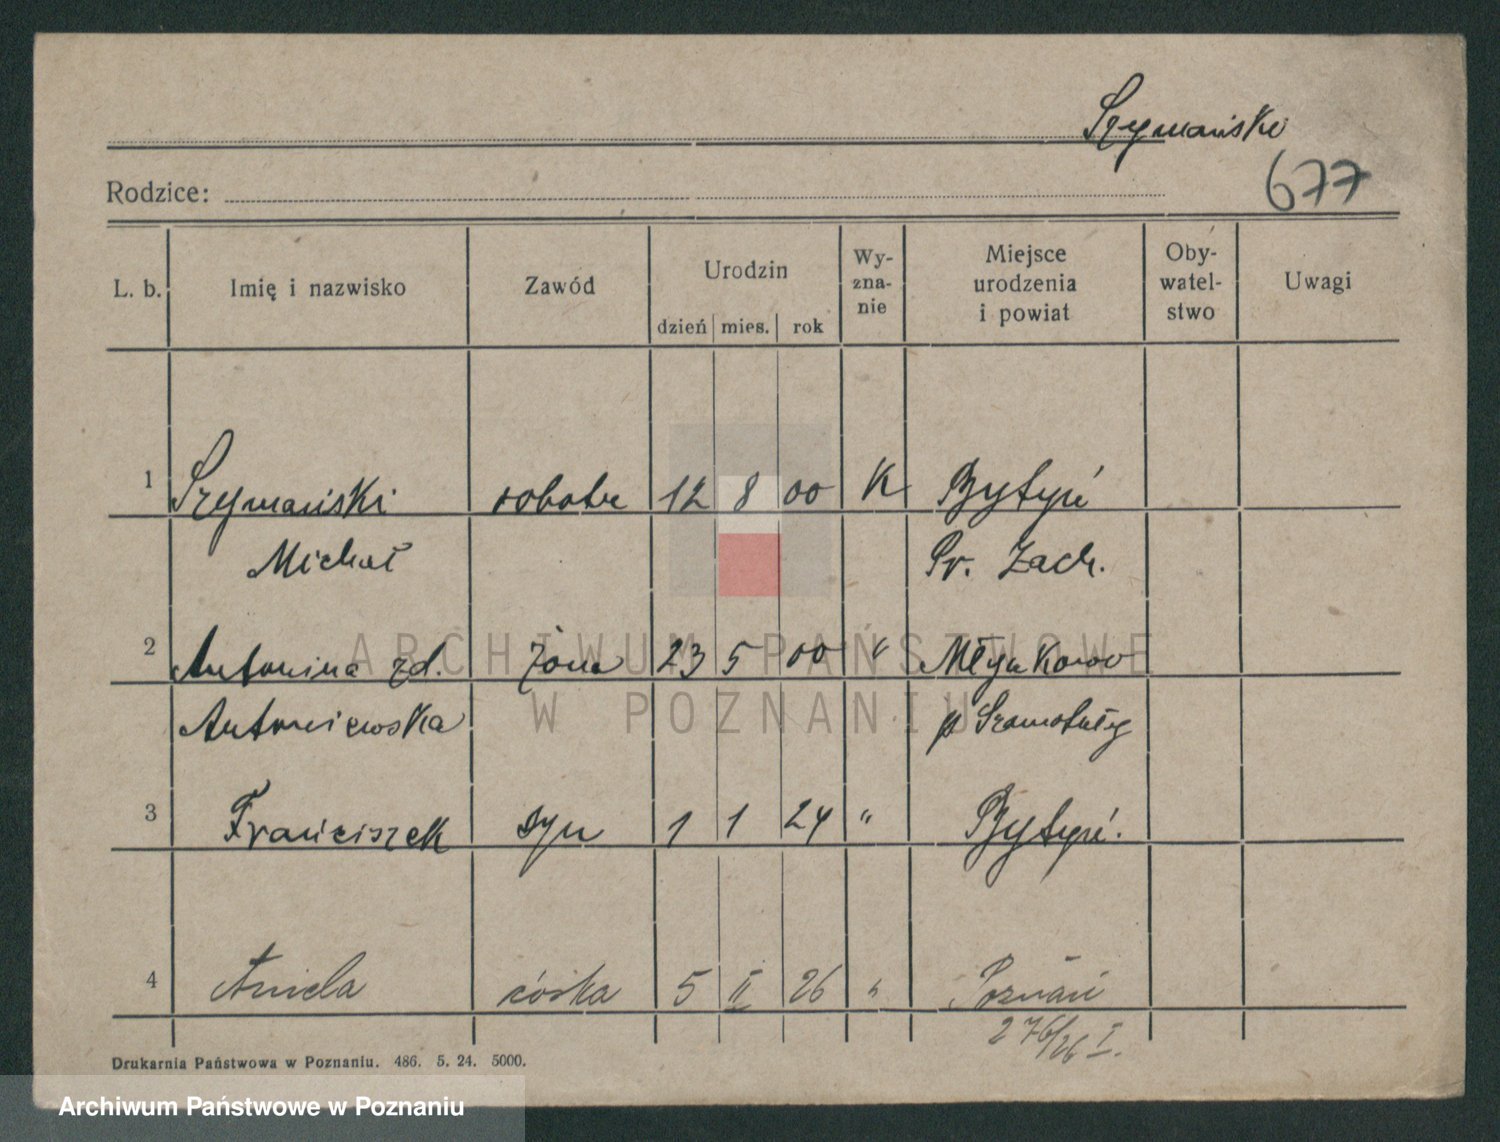 Szymański
677
Rodzice:
L. b. Imię i nazwisko Zawód Urodzin dzień mies. rok Wy-zna-nie Miejsce urodzenia i powiat Oby-watel-stwo Uwagi
1 Szymański robotn 12 8 00 K Bytyń
Michał Pr. Zach.
2 Antonina zd. żona 23 5 00 " Młynkowo
Antoniewska p Szamotuły
3 Franciszek syn 1 1 24 " Bytyń.
4 Aniela córka 5 II 26 " Poznań
276/26 I.
Drukarnia Państwowa w Poznaniu. 486. 5. 24. 5000.
ARCHIWUM PAŃSTWOWE
W POZNANIU
Archiwum Państwowe w Poznaniu